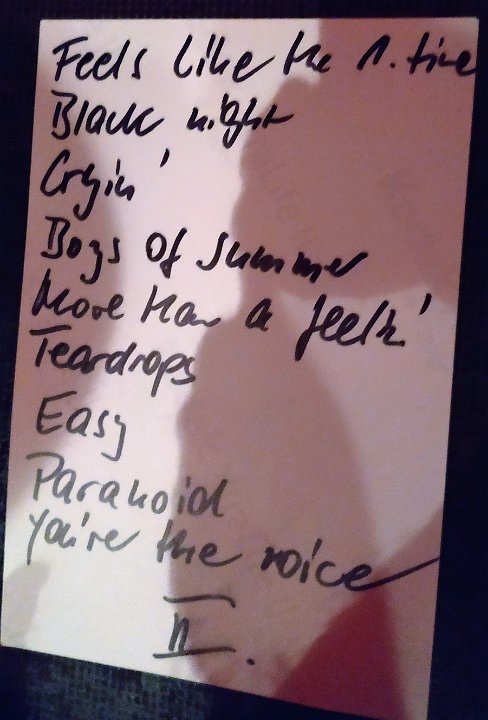 Feels like the 1. time
Black night
Cryin'
Boys of summer
More than a feelin'
Teardrops
Easy
Paranoid
You're the voice
II.